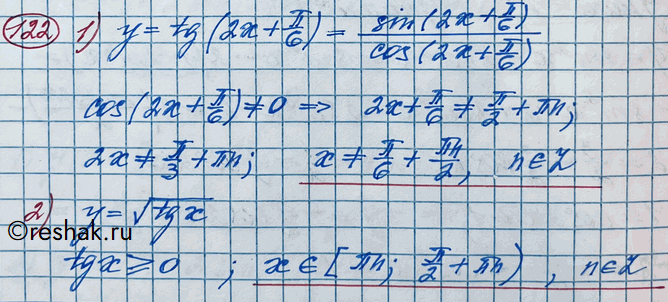 122 1) y = tg(2x + π/6) = sin(2x + π/6) / cos(2x + π/6)
cos(2x + π/6) ≠ 0 => 2x + π/6 ≠ π/2 + πn;
2x ≠ π/3 + πn; x ≠ π/6 + πn/2, n ∈ Z
2) y = √tgx
©reshak.ru
tgx ⩾ 0 ; x ∈ [πn; π/2 + πn), n ∈ Z